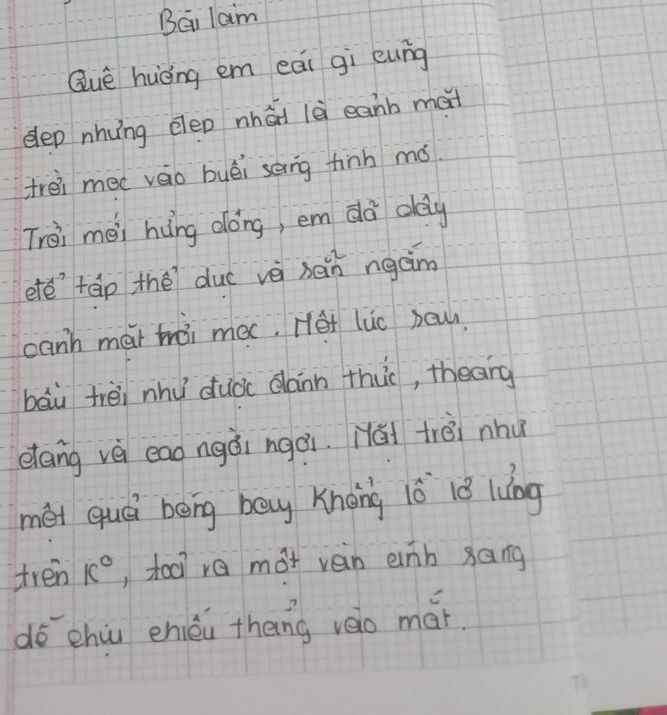 Bài làm
Quê hương em cái gì cũng
đẹp nhưng đẹp nhất là cảnh mặt
trời mọc vào buổi sáng tinh mơ.
Trời mới hửng đông, em đã dậy
để tập thể dục và sẵn ngắm
cảnh mặt trời mọc. Một lúc sau,
bầu trời như được đánh thức, thoáng
đãng và cao ngời ngợi. Mặt trời như
một quả bóng bay Khổng lồ lơ lửng
trên K°, toả ra một vàn ánh sáng
dố chịu chiếu thẳng vào mắt.